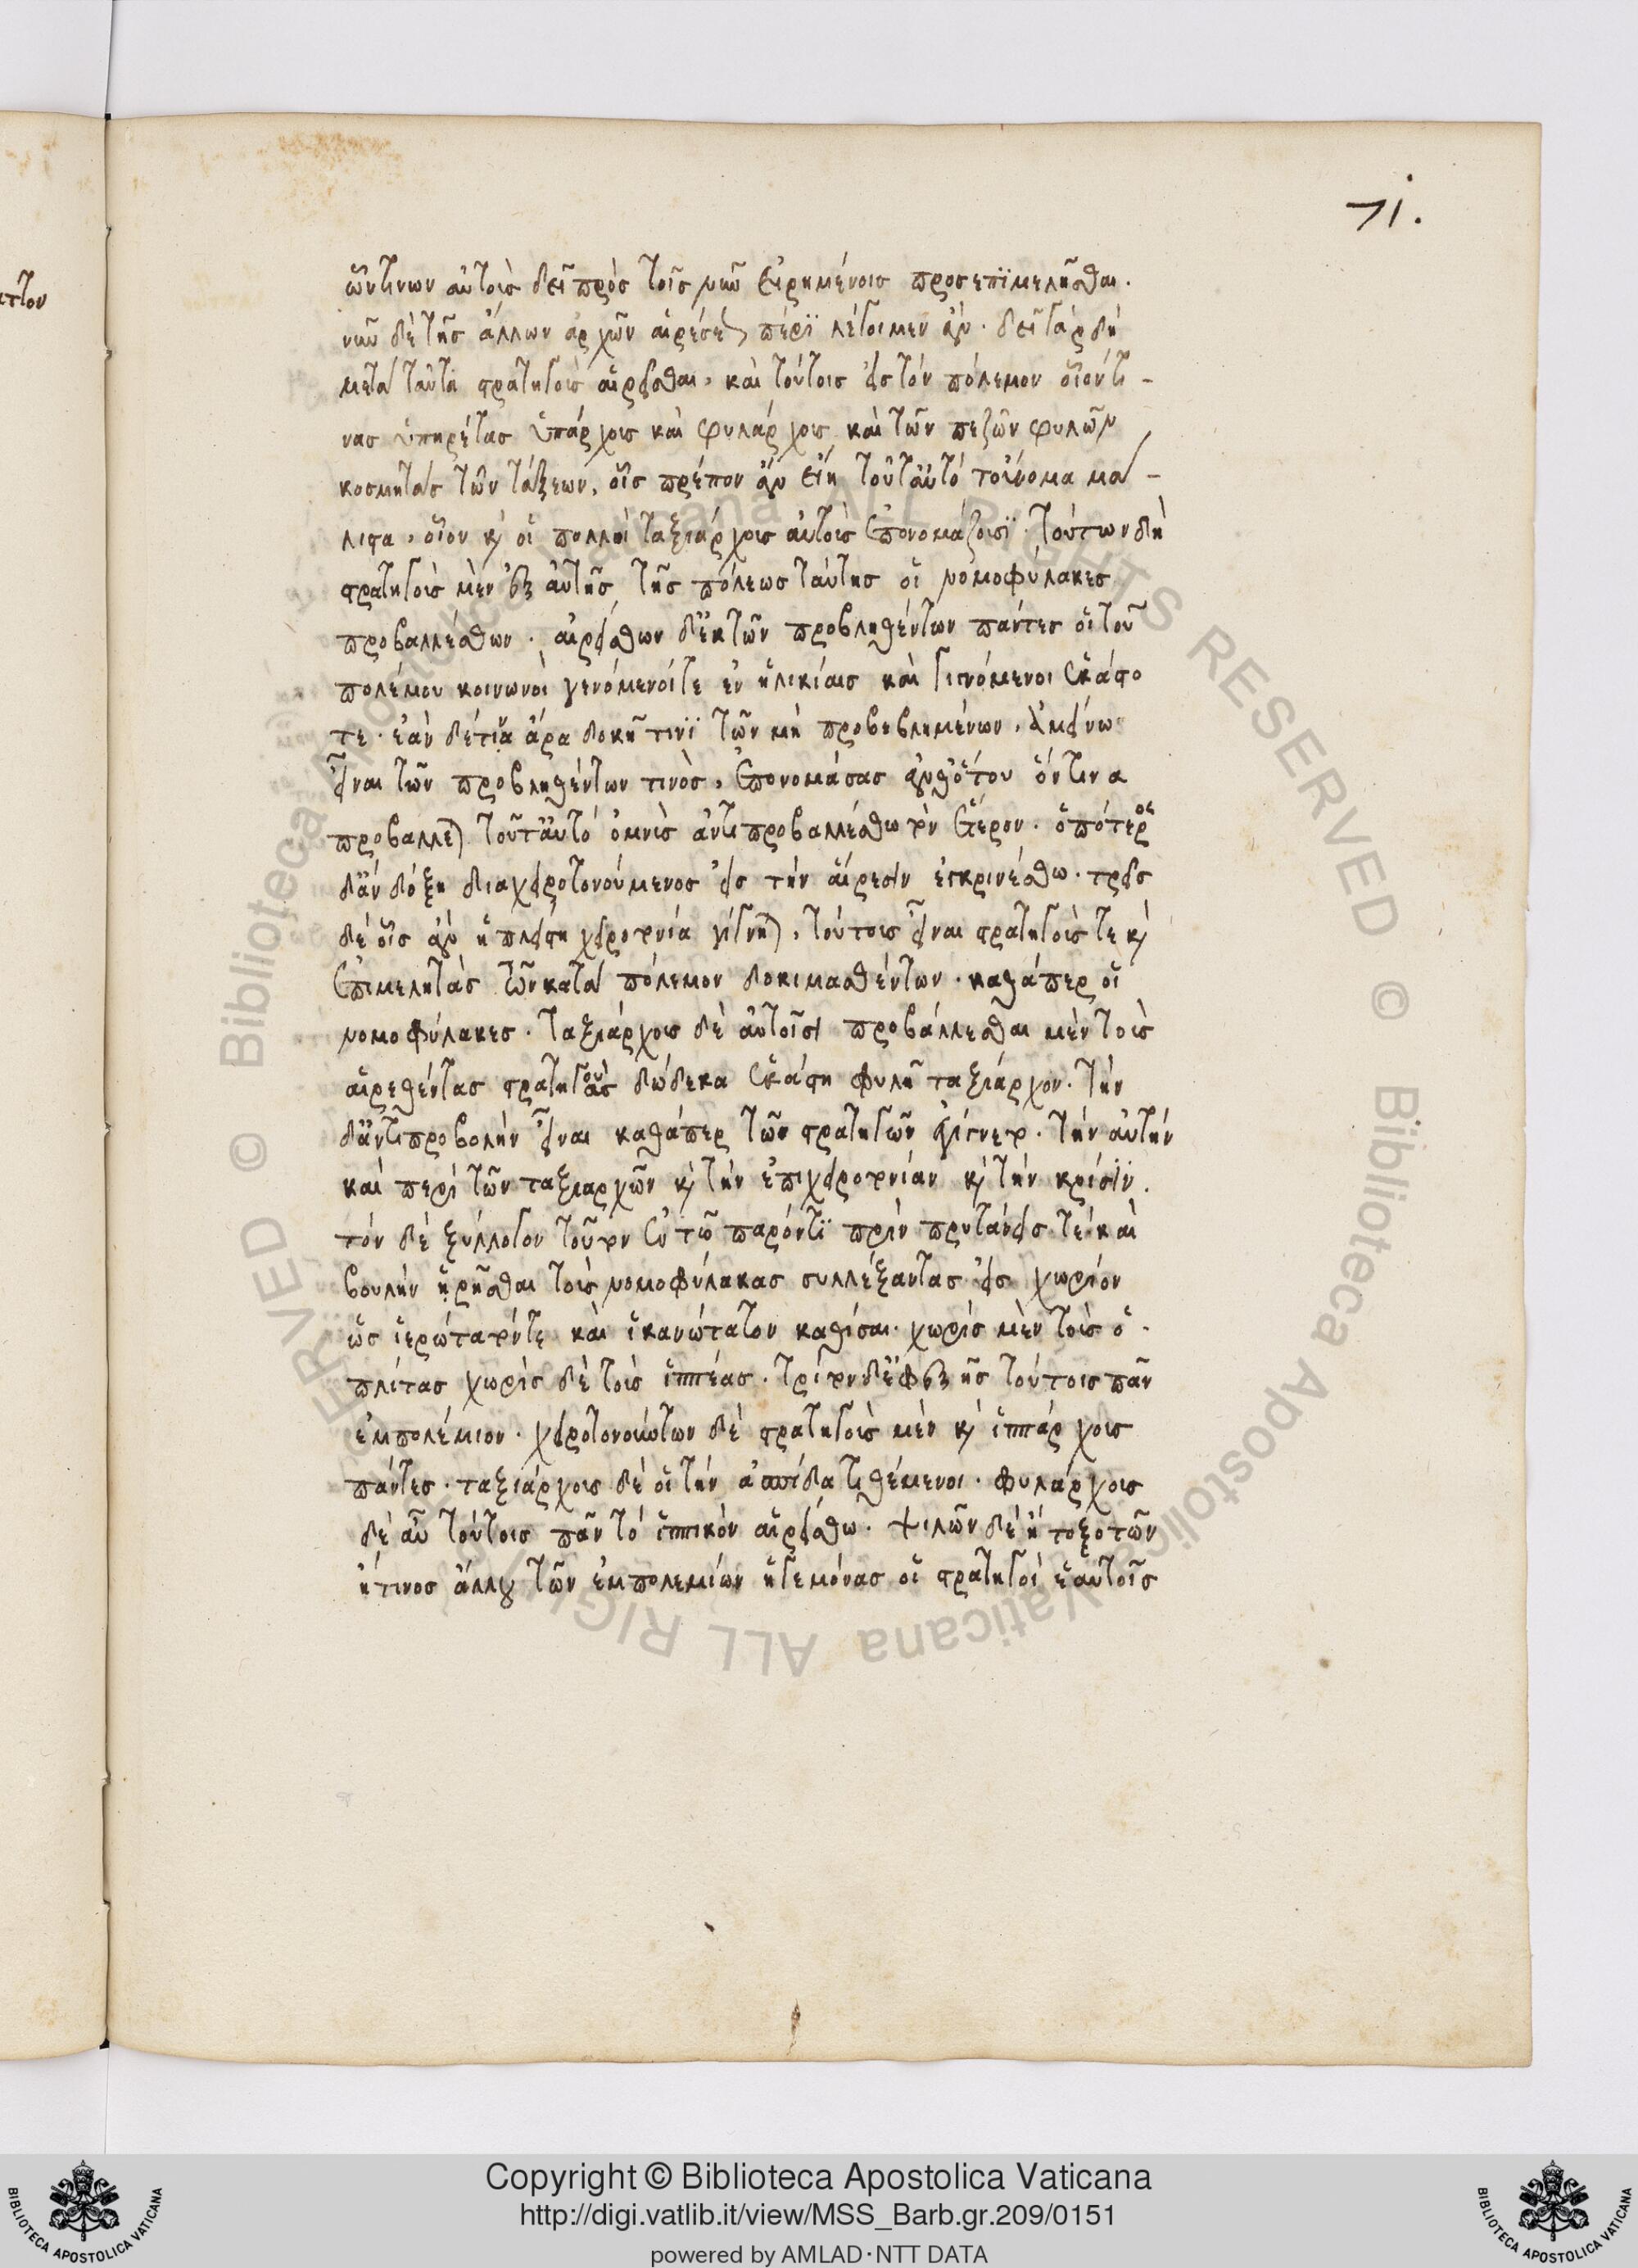 71.
ὧντινων αὐτοὺς δεῖ πρὸς τοῖς νῦν εἰρημένοις προσεπιμελῆσθαι.
νῦν δὲ τῆς ἄλλων ἀρχῶν αἱρέσεως πέρι λέγοιμεν ἄν. δεῖ γὰρ δὴ
μετὰ ταῦτα στρατηγοὺς αἱρεῖσθαι, καὶ τούτοις εἰς τὸν πόλεμον οἷόν τι-
νας ὑπηρέτας ἱπάρχους καὶ φυλάρχους καὶ τῶν πεζῶν φυλῶν
κοσμητὰς τῶν τάξεων, οἷς πρέπον ἂν εἴη τοῦτ' αὐτὸ τοὔνομα μά-
λιστα, οἷον καὶ οἱ πολλοὶ ταξιάρχους αὐτοὺς ἐπονομάζουσι. τούτων δὴ
στρατηγοὺς μὲν ἐξ αὐτῆς τῆς πόλεως ταύτης οἱ νομοφύλακες
προβαλλέσθων. αἱρείσθων δ' ἐκ τῶν προβληθέντων πάντες οἱ τοῦ
πολέμου κοινωνοὶ γενόμενοί τε ἐν ἡλικίαις καὶ γιγνόμενοι ἑκάστο
τε. ἐὰν δέ τις ἄρα δοκῇ τινι τῶν μὴ προβεβλημένων, ἀμείνω
εἶναι τῶν προβληθέντων τινὸς, ἐπονομάσας ἀνθ' ὅτου ὅντινα
προβάλλεται τοῦτ' αὐτὸ ὀμνὺς ἀντιπροβαλλέσθω τὸν ἕτερον. ὁπότερος
δ' ἂν δόξῃ διαχειροτονούμενος εἰς τὴν αἵρεσιν ἐγκρινέσθω. τρεῖς
δὲ οἷς ἂν ἡ πλείστη χειροτονία γίγνηται, τούτους εἶναι στρατηγούς τε καὶ
ἐπιμελητὰς τῶν κατὰ πόλεμον δοκιμασθέντων. καθάπερ οἱ
νομοφύλακες. ταξιάρχους δὲ αὐτοῖσι προβάλλεσθαι μὲν τοὺς
αἱρεθέντας στρατηγοὺς δώδεκα ἑκάστῃ φυλῇ ταξιάρχον. τὴν
δ' ἀντιπροβολὴν εἶναι καθάπερ τῶν στρατηγῶν ἐγίγνετο. τὴν αὐτὴν
καὶ περὶ τῶν ταξιαρχῶν καὶ τὴν ἐπιχειροτονίαν καὶ τὴν κρίσιν.
τὸν δὲ ξύλλογον τοῦτον ἐν τῷ παρόντι πρὶν πρυτάνεις τε καὶ
βουλὴν ᾑρῆσθαι τοὺς νομοφύλακας συλλέξαντας εἰς χωρίον
ὡς ἱερώτατόν τε καὶ ἱκανώτατον καθίσαι. χωρὶς μὲν τοὺς ὁ-
πλίτας χωρὶς δὲ τοὺς ἱππέας. τρίτον δ' ἐφεξῆς τούτοις πᾶν
ἐμπολέμιον. χειροτονούντων δὲ στρατηγοὺς μὲν καὶ ἱππάρχους
πάντες. ταξιάρχους δὲ οἱ τὴν ἀσπίδα τιθέμενοι. φυλάρχους
δὲ αὖ τούτοις πᾶν τὸ ἱππικὸν αἱρείσθω. ψιλῶν δὲ ἢ τοξοτῶν
ἤ τινος ἄλλου τῶν ἐμπολεμίων ἡγεμόνας οἱ στρατηγοὶ ἑαυτοῖς
Copyright © Biblioteca Apostolica Vaticana
http://digi.vatlib.it/view/MSS_Barb.gr.209/0151
powered by AMLAD·NTT DATA